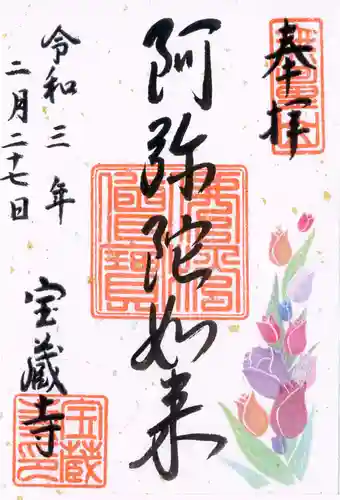 奉拝
阿弥陀如来
令和三年
二月二十七日
宝蔵寺